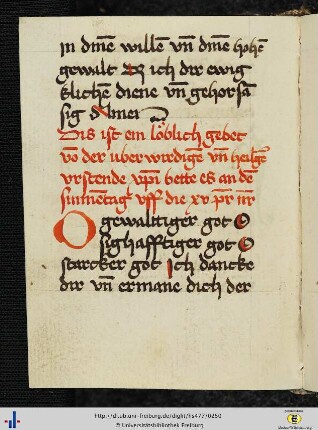 in dine͂ wille͂ vn͂ dine͂ hohe͂
gewalt Dz ich dir ewig
klichen diene vn͂ gehorsa͂
sig Amen
Dis ist ein löblich gebet
vo͂ der uberwirdige͂ vn͂ heilge͂
vrstende bette es an de͂
sunnentag vff die xv pr nr
O gewaltiger got O
sighafftiger got O
starcker got Ich dancke
dir vn͂ ermane dich der
http://dl.ub.uni-freiburg.de/diglit/hs477/0250
© Universitätsbibliothek Freiburg